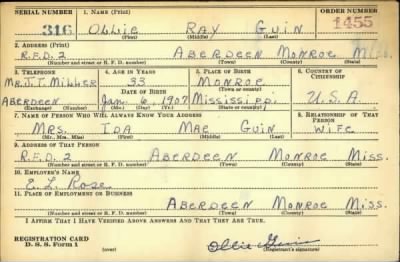 SERIAL NUMBER 1. NAME (Print) ORDER NUMBER
316 OLLIE RAY GUIN 1455
(First) (Middle) (Last)
2. ADDRESS (Print)
R.F.D. 2 ABERDEEN MONROE MISS.
(Number and street or R. F. D. number) (Town) (County) (State)
3. TELEPHONE 4. AGE IN YEARS 5. PLACE OF BIRTH 6. COUNTRY OF CITIZENSHIP
MR. J. T. MILLER 33 MONROE
DATE OF BIRTH (Town or county)
ABERDEEN JAN. 6, 1907 MISSISSIPPI U.S.A.
(Exchange) (Number) (Mo.) (Day) (Yr.) (State or country)
7. NAME OF PERSON WHO WILL ALWAYS KNOW YOUR ADDRESS 8. RELATIONSHIP OF THAT PERSON
MRS. IDA MAE GUIN WIFE
(Mr., Mrs., Miss) (First) (Middle) (Last)
9. ADDRESS OF THAT PERSON
R.F.D. 2 ABERDEEN MONROE MISS.
(Number and street or R. F. D. number) (Town) (County) (State)
10. EMPLOYER'S NAME
E. L. ROSE
11. PLACE OF EMPLOYMENT OR BUSINESS
ABERDEEN MONROE MISS.
(Number and street or R. F. D. number) (Town) (County) (State)
I AFFIRM THAT I HAVE VERIFIED ABOVE ANSWERS AND THAT THEY ARE TRUE.
REGISTRATION CARD
D. S. S. Form 1 (over) Ollie Guin
(Registrant's signature)